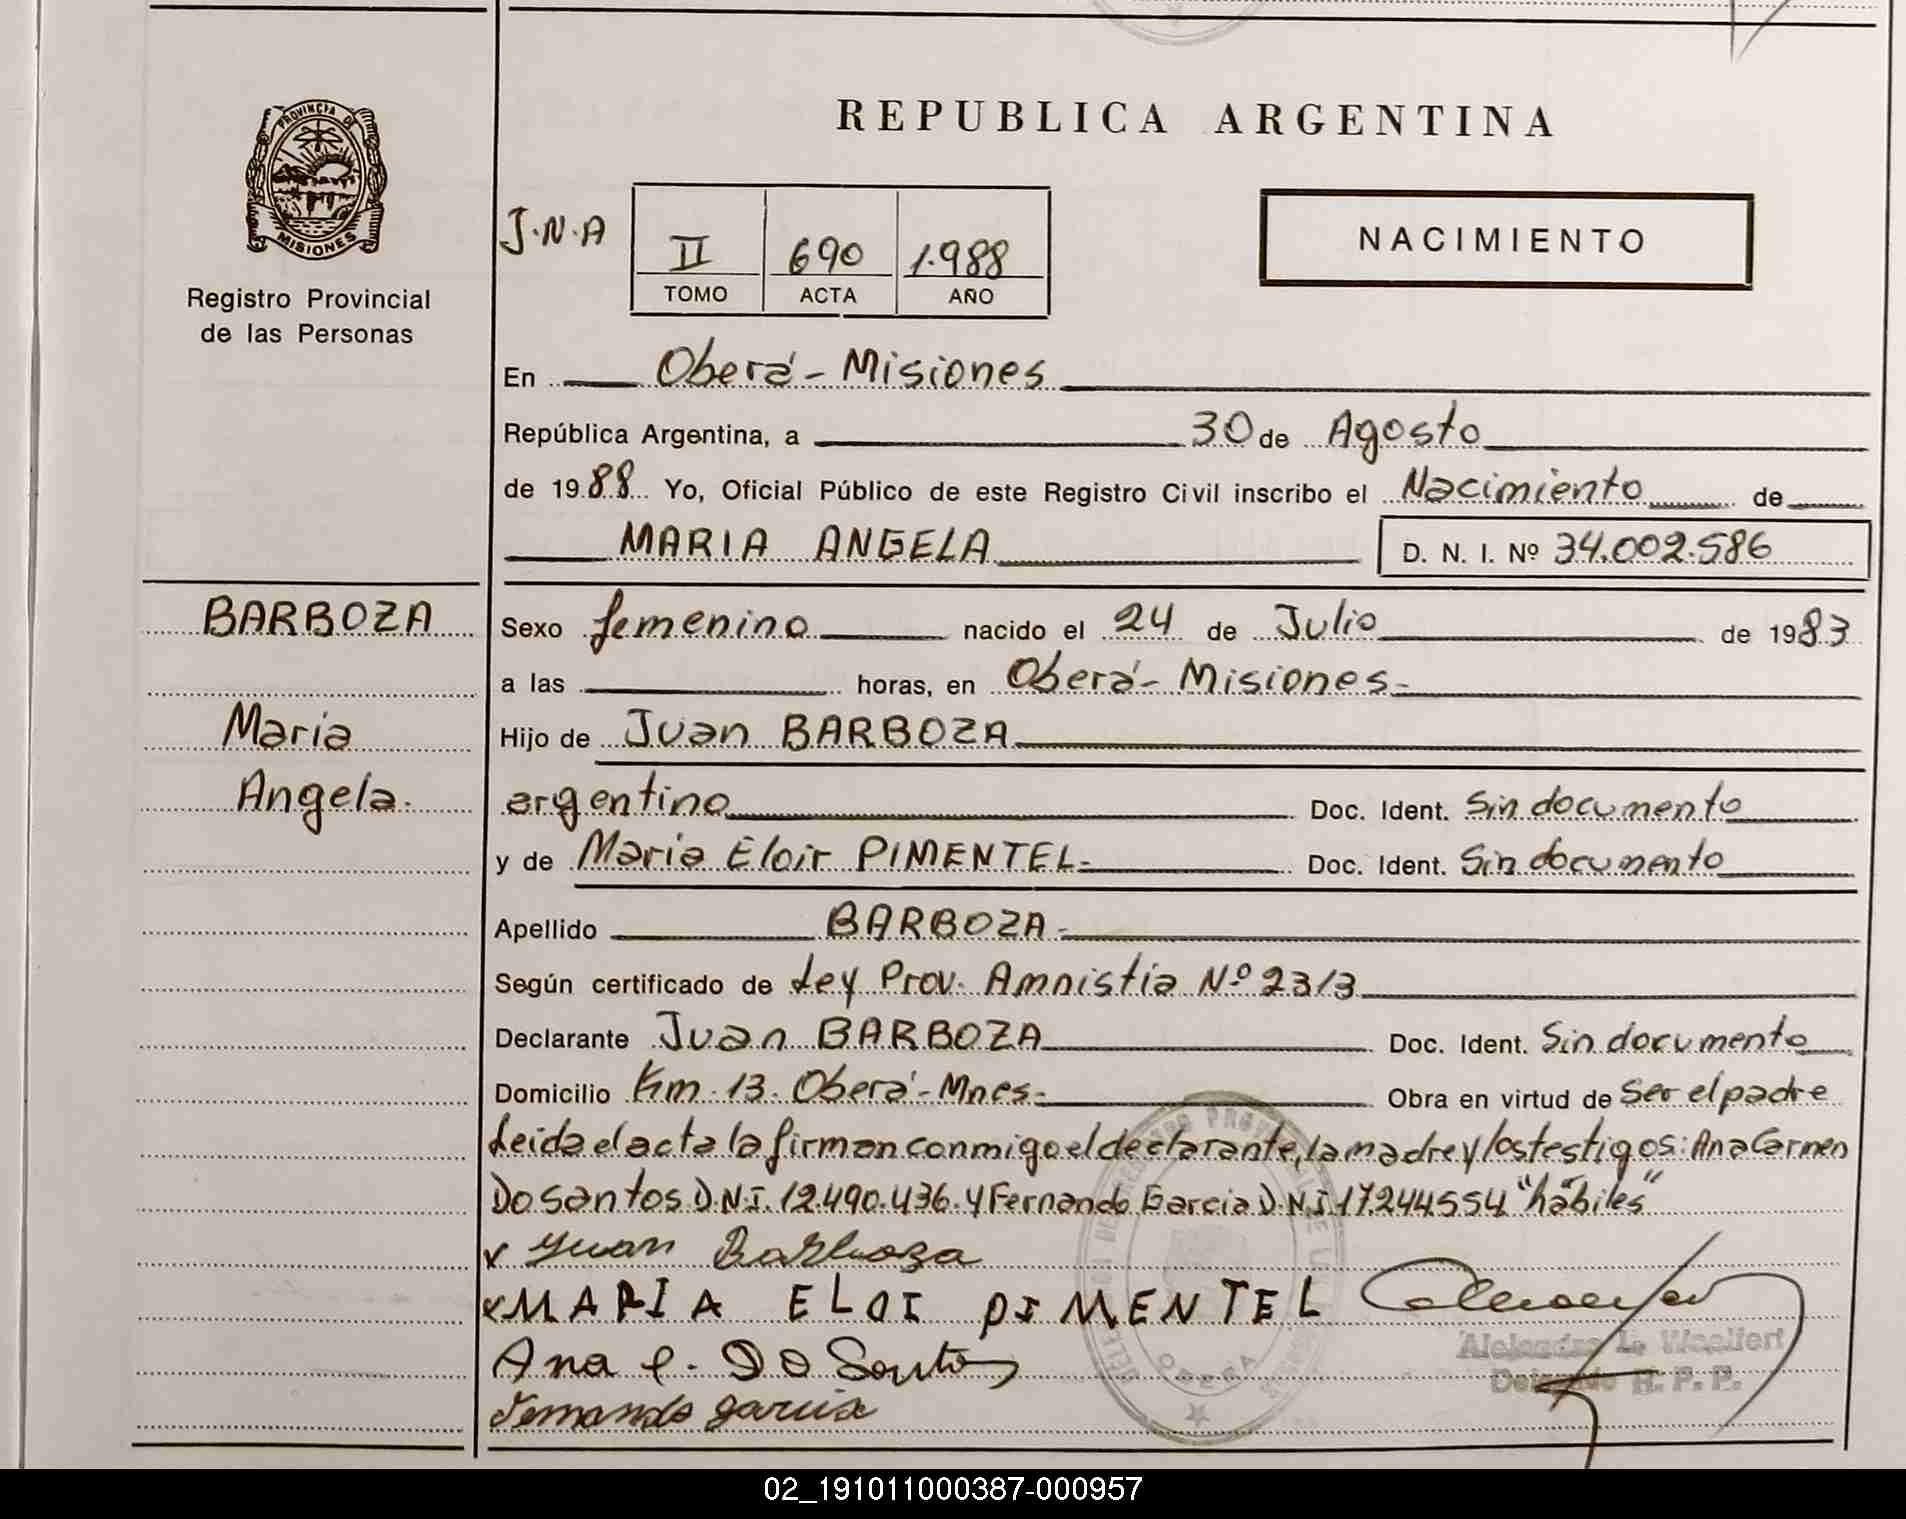 PROVINCIA DE
MISIONES
Registro Provincial
de las Personas
REPUBLICA ARGENTINA
J.N.A
II 690 1.988
TOMO ACTA AÑO
NACIMIENTO
En Oberá - Misiones
República Argentina, a 30 de Agosto
de 1988 Yo, Oficial Público de este Registro Civil inscribo el Nacimiento de
MARIA ANGELA D. N. I. Nº 34.002.586
BARBOZA
Maria
Angela.
Sexo femenino nacido el 24 de Julio de 1983
a las horas, en Oberá - Misiones-
Hijo de Juan BARBOZA
argentino Doc. Ident. Sin documento
y de Maria Eloir PIMENTEL- Doc. Ident. Sin documento
Apellido BARBOZA-
Según certificado de Ley Prov. Amnistia Nº 2313
Declarante Juan BARBOZA Doc. Ident. Sin documento
Domicilio Km. 13. Oberá - Mnes- Obra en virtud de Ser el padre
Leida el acta la firman conmigo el declarante, la madre y los testigos: Ana Carmen
Do Santos D.N.I. 12.490.436. y Fernando Garcia D.N.I 17.244554 "hábiles"
x Juan Barboza
x MARIA ELOI PIMENTEL
Ana C. Do Santos
Fernando garcia
Alejandro L.
Delegado R. P. P.
OBERA
02_191011000387-000957